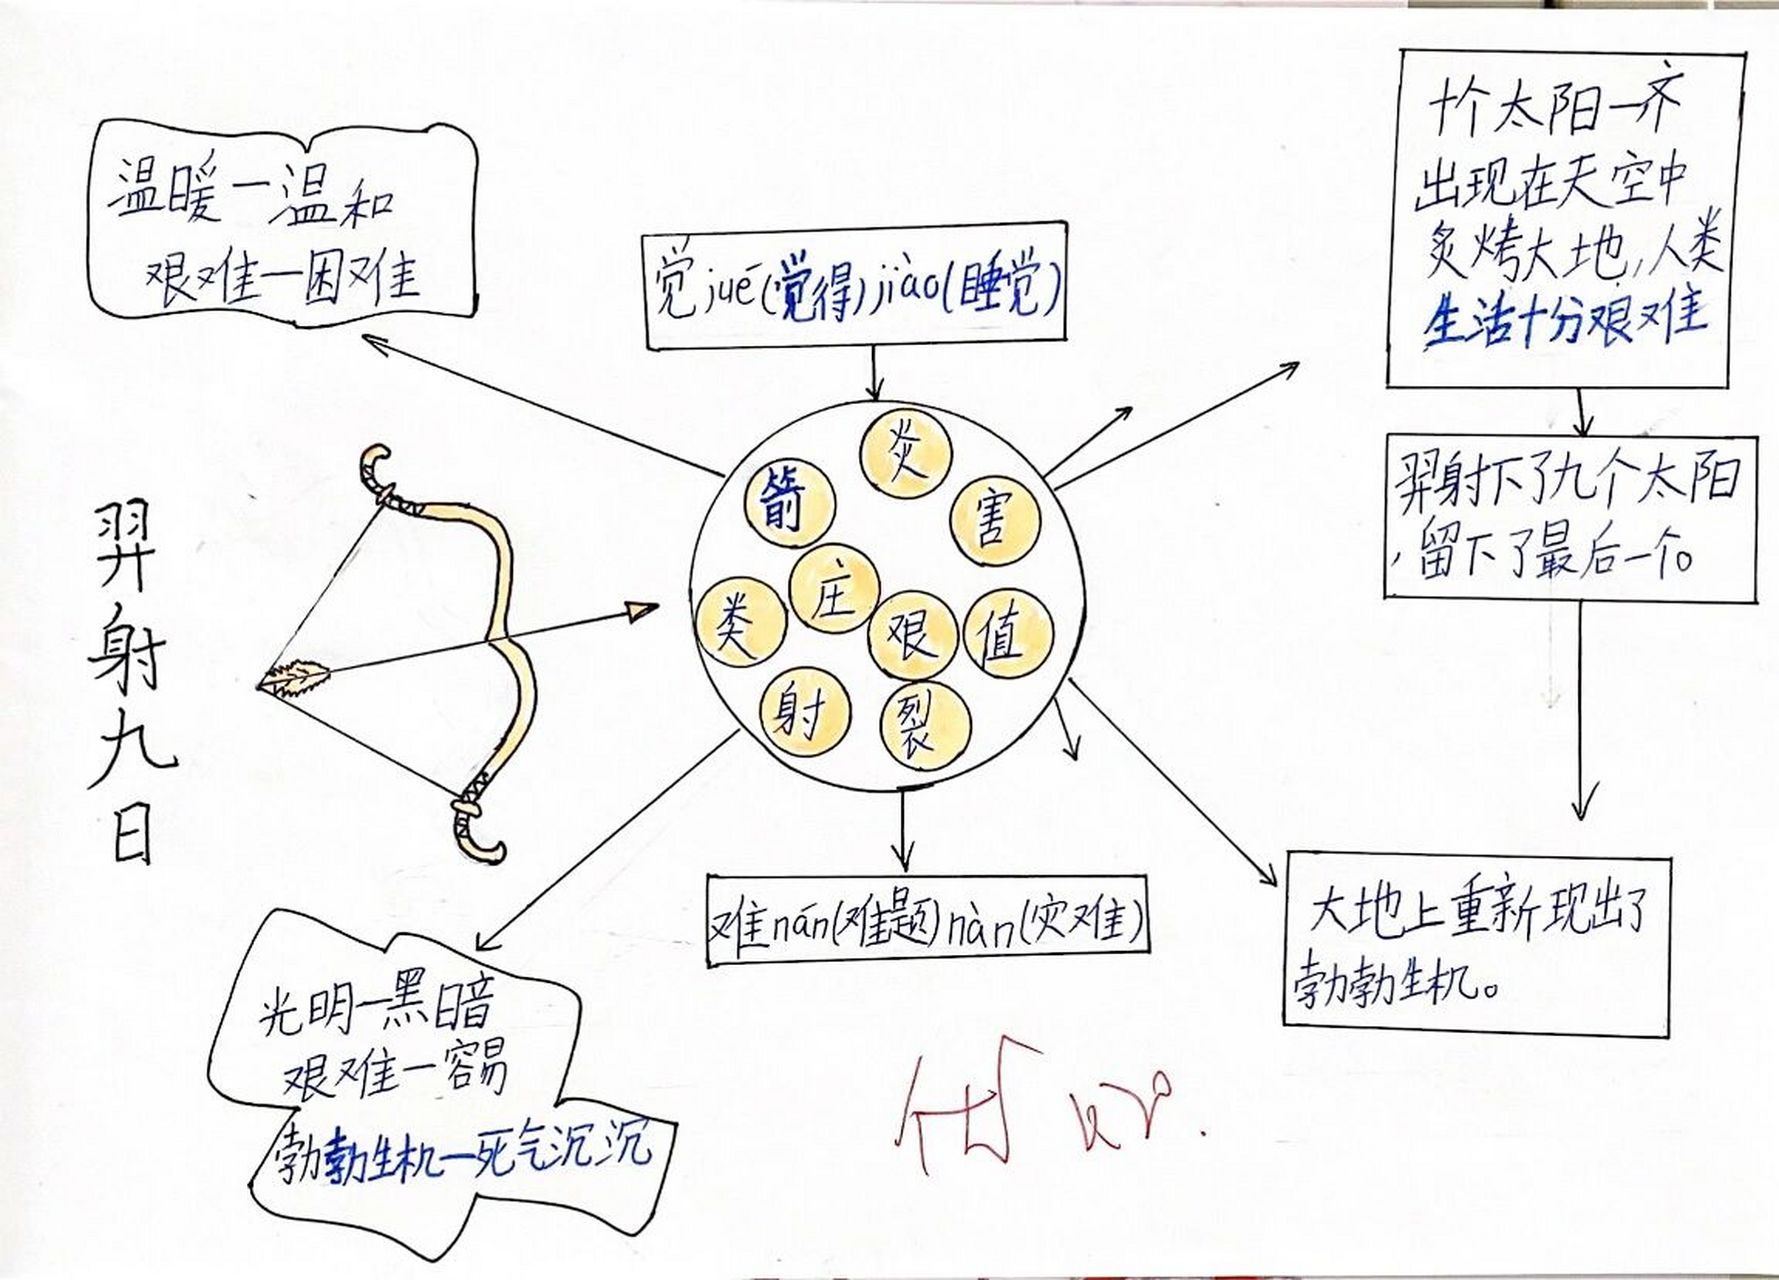 温暖—温和
艰难—困难
觉jué(觉得)jiào(睡觉)
十个太阳一齐
出现在天空中
炙烤大地,人类
生活十分艰难
羿射下了九个太阳
,留下了最后一个。
大地上重新现出了
勃勃生机。
羿射九日
炎
箭
害
庄
类
艰
值
射
裂
难nán(难题)nàn(灾难)
光明—黑暗
艰难—容易
勃勃生机—死气沉沉